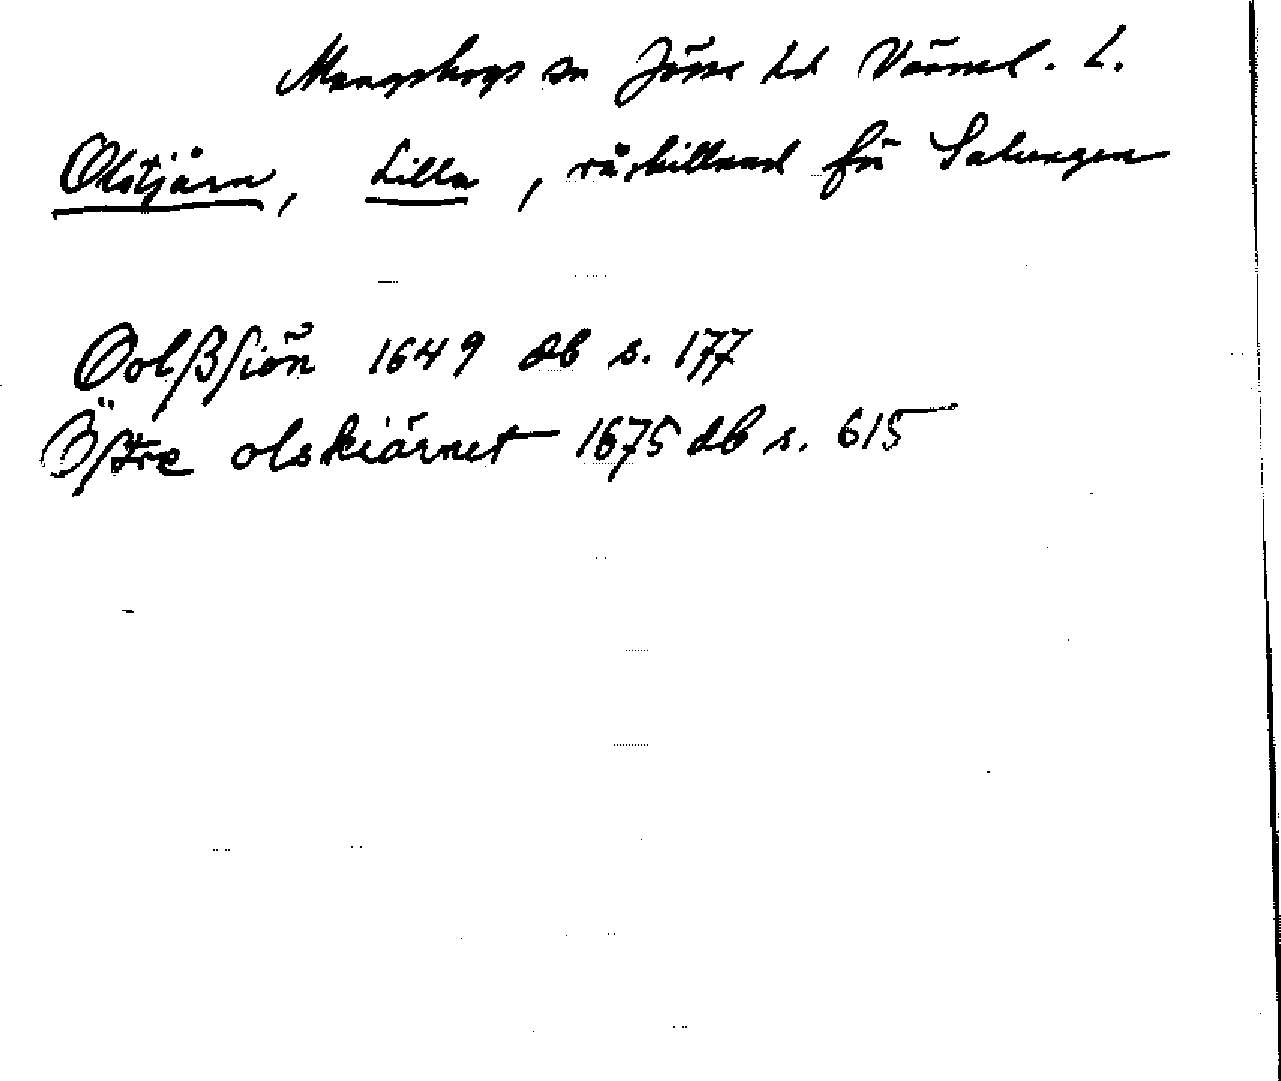 Mangskogs sn Jösse hd Värml. L.
Olstjärn, Lilla, råskillnad för Salungen
Oolßsiön 1649 db s. 177
Östre olskiärnet 1675 db s. 615